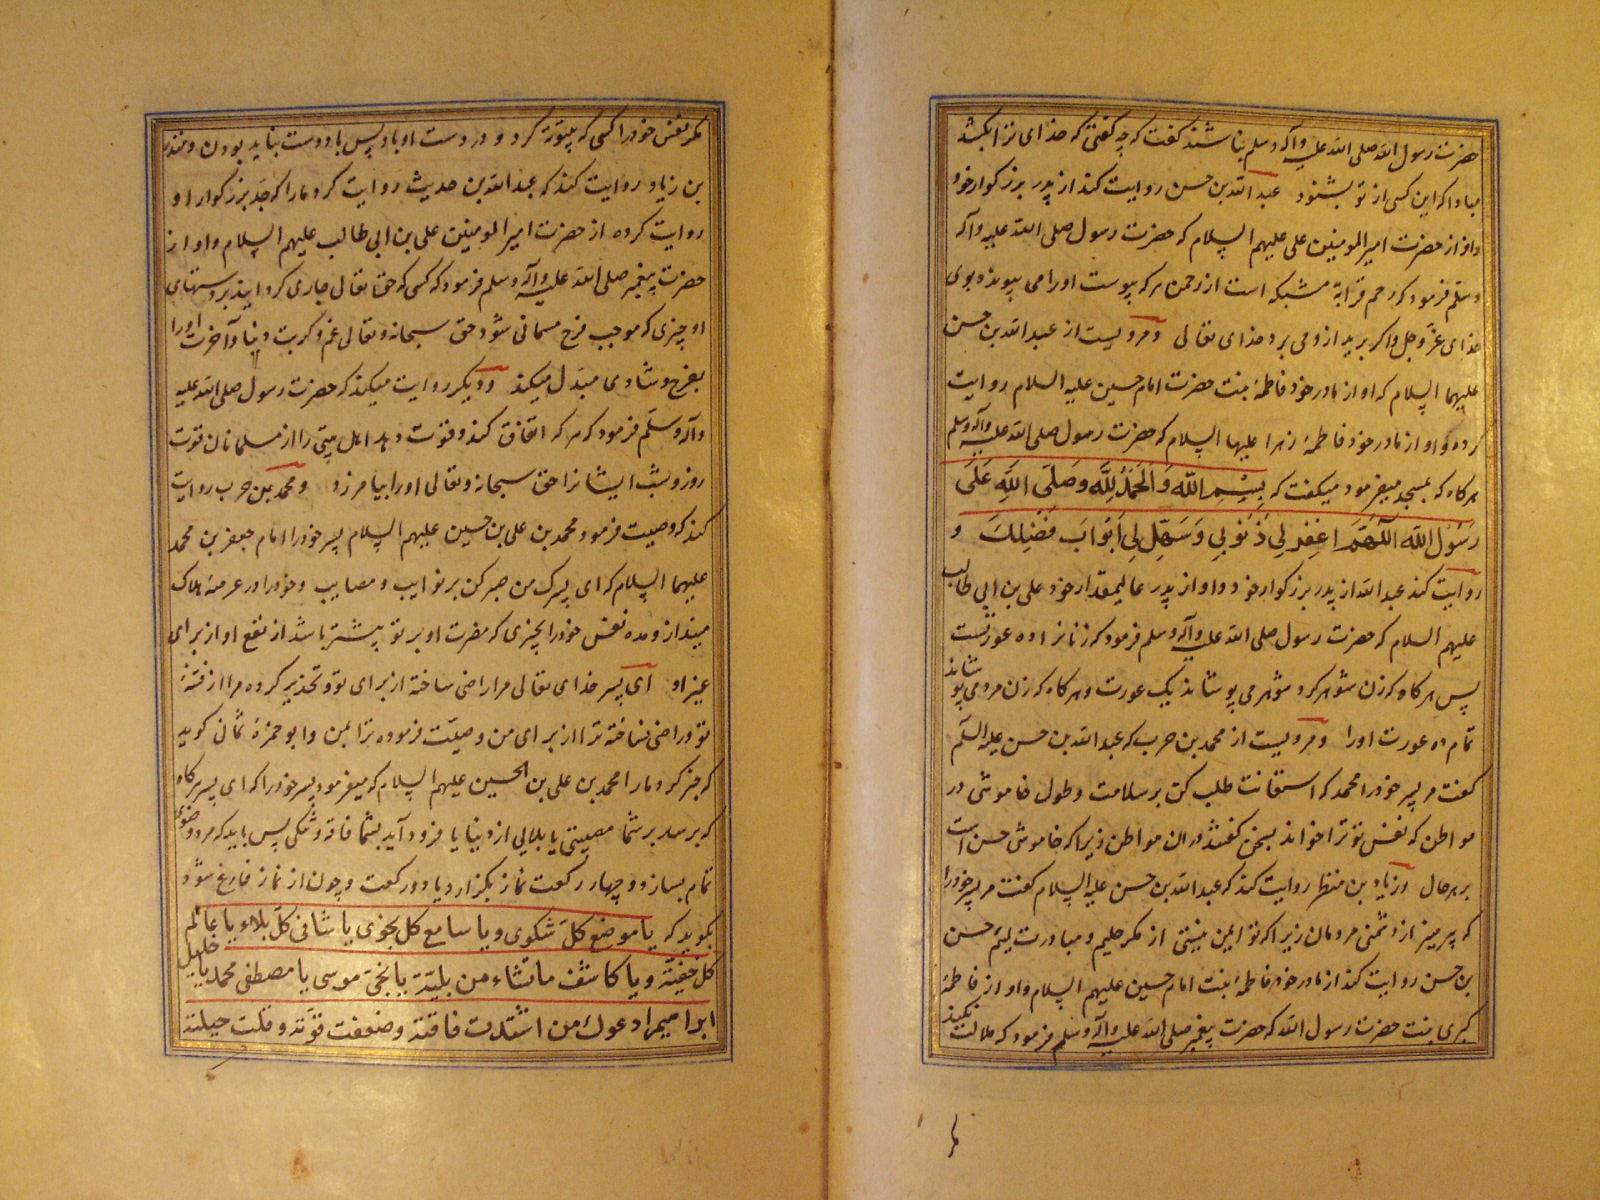 حضرت رسول الله صلی الله علیه وآله وسلم بنا شد گفت که چه گفتی که خدای ترا بکشد
مبادا که این کسی از تو بشنود عبد الله بن حسن روایت کند از پدر بزرکوار خود
واو از حضرت امیر المومنین علی علیهم السلام که حضرت رسول صلی الله علیه وآله
وسلم فرمود که رحم قرابة مشبکه است از رحمن هر که پیوست اورا می پیوندد بوی
خدای عزوجل واکر برید ازو می برد خدای تعالی ومرویست از عبد الله بن حسن
علیهما السلام که او از مادر خود فاطمهٔ بنت حضرت امام حسین علیه السلام روایت
کرده واو از مادر خود فاطمهٔ زهرا علیها السلام که حضرت رسول صلی الله علیه وآله وسلم
هرکاه که بمسجد میفرمود میکفت که بِسْمِ اللّه وَالْحَمْدُ لِلَّه وَصَلَّی اللّهُ عَلَی
رَسُولِ اللّه اَللّهُمَّ اغْفِرْ لِی ذُنُوبِی وَسَهِّلْ لِی اَبْوابَ فَضْلِكَ و
روایت کند عبد الله از پدر بزرکوار خود واو از پدر عالیمقدار خود علی بن ابی طالب
علیهم السلام که حضرت رسول صلی الله علیه وآله وسلم فرمود که زنانرا ده عورتست
پس هرکاه که زن شوهر کرد شوهر می پوشاند یک عورت وهرکاه که زن مرد می پوشاند
تمام ده عورت اورا ومرویست از محمد بن حرب که عبد الله بن حسن علیه السلم
کفت مر پسر خودرا محمد که استعانت طلب کن بر سلامت وطول خاموشی در
مواطن که نفس تو ترا خواند بسخن کفتن دران مواطن زیرا که خاموشی حسن است
بر هر حال وزیاد بن منظر روایت کند که عبد الله بن حسن علیه السلام کفت مر پسر خودرا
که پرهیز از دشمنی مردمان زیرا که تو ایمن نیستی از مکر حلیم ومبادرت لئیم حسن
بن حسن روایت کند از مادر خود فاطمهٔ بنت امام حسین علیهم السلام واو از فاطمهٔ
کبری بنت حضرت رسول الله که حضرت پیغمبر صلی الله علیه وآله وسلم فرمود که ملامت نکند
مکر نفس خودرا کسی که بیتوته کرد ودر دست او باد پس با دوست بناید بودن ومنذر
بن زیاد روایت کند که عبد الله بن حدیث روایت کرد مارا که جد بزرکوار او
روایت کرده از حضرت امیر المومنین علی بن ابی طالب علیهم السلام واو از
حضرت پیغمبر صلی الله علیه وآله وسلم فرمود که کسی که حق تعالی جاری کرداند بر دستهای
او چیزی که موجب فرح مسلمانی شود حق سبحانه وتعالی غم وکربت دنیا وآخرت اورا
بفرح وشادی مبدل میکند ودیکر روایت میکند که حضرت رسول صلی الله علیه
وآله وسلم فرمود که هر که انفاق کند وقوت دهد اهل بیتی را از مسلمانان قوت
روز وشب ایشانرا حق سبحانه وتعالی اورا بیامرزد ومحمد بن حرب روایت
کند که وصیت فرمود محمد بن علی بن حسین علیهم السلام پسر خودرا امام جعفر بن محمد
علیهما السلام که ای پسرک من صبر کن بر نوایب ومصایب وخودرا در عرصهٔ هلاک
مینداز ومده نفس خودرا بچیزی که مضرت او بر تو بیشتر باشد از نفع او از برای
غیر او ای پسر خدای تعالی مرا راضی ساخته از برای تو وتحذیر کرده مرا از فتنهٔ
تو وراضی نساخته ترا از برای من وصیت فرموده ترا بمن وابو حمزهٔ ثمالی کوید
که خبر کرد مارا محمد بن علی بن الحسین علیهم السلام که میفرمود پسر خودرا که ای پسر هرکاه
که برسد بر شما مصیبتی یا بلایی از دنیا یا فرود آید بشما فاقه وتنکی پس باید که مرد وضوی
تمام بسازد وچهار رکعت نماز بکزارد یا دو رکعت وچون از نماز فارغ شود
بکوید که یا موضع کل شکوی ویا سامع کل نجوی یا شافی کل بلاء ویا عالم
کل خفیّة ویا کاشف ما تشاء من بلیّة یا نجیّ موسی یا مصطفی محمد یا خلیل
ابراهیم ادعوك من اشتدت فاقته وضعفت قوّته وقلت حیلته